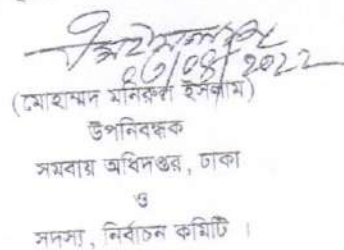 (মোহাম্মদ মনিরুল ইসলাম)
উপনিবন্ধক
সমবায় অধিদপ্তর, ঢাকা
ও
সদস্য, নির্বাচন কমিটি ।